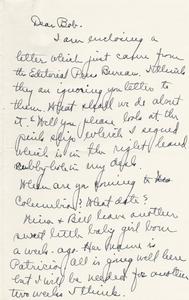 Dear Bob.
I am enclosing a
letter which just came from
the Editorial Press Buream. I think
they are ignoring you letter to
them. What shall we do about
it. Will you please look at the
pink slip which I signed
which is in the right
cubby hole in my desk.
When are you coming to
Columbia? What date?
& Bill have another
sweet little baby girl born
a week ago. Her name is
Patricia, all is going well here
but I will be needed for another
two weeks I think.